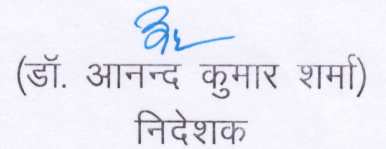 (डॉ. आनन्द कुमार शर्मा)
निदेशक